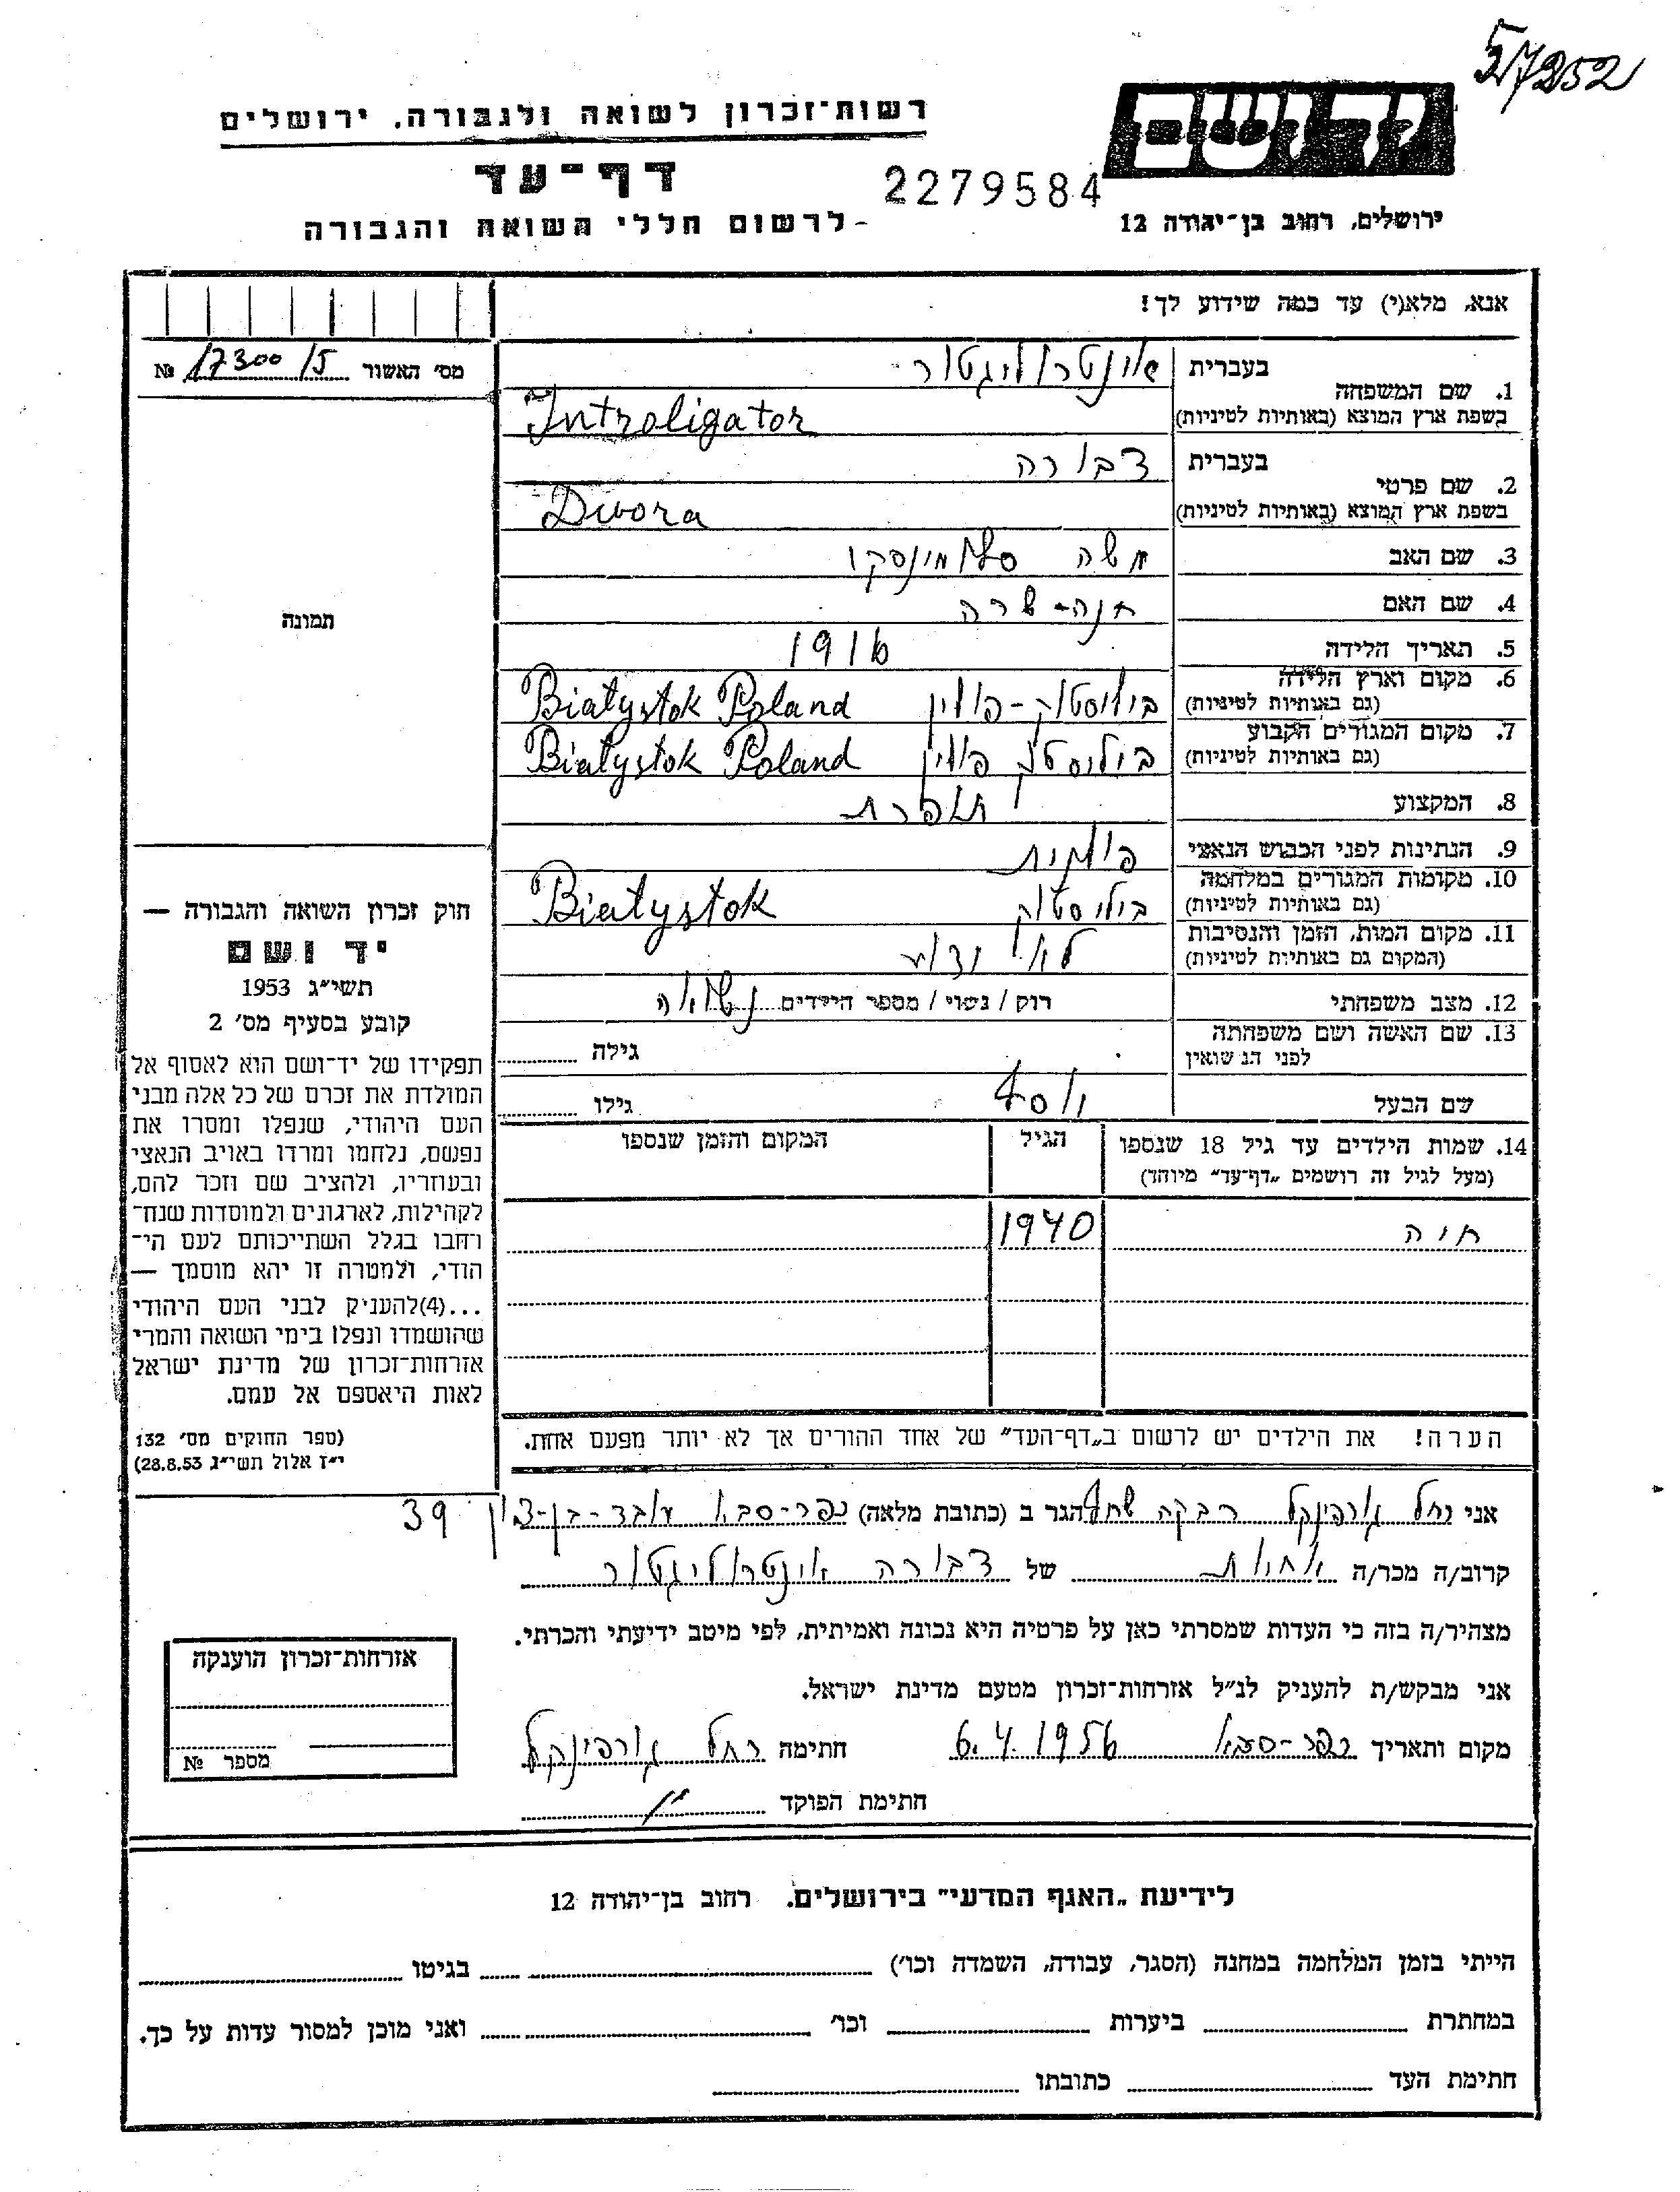 57252
רשות־זכרון לשואה ולגבורה, ירושלים
יד ושם
דף־עד
2279584
לרשום חללי השואה והגבורה
ירושלים, רחוב בן־יהודה 12
אנא, מלא(י) עד כמה שידוע לך!
מס׳ האשור 17300/5 №
1. שם המשפחה בעברית אינטרוליגטור
בשפת ארץ המוצא (באותיות לטיניות) Introligator
2. שם פרטי בעברית דבורה
בשפת ארץ המוצא (באותיות לטיניות) Dwora
3. שם האב משה
4. שם האם חנה-שרה
5. תאריך הלידה 1916
6. מקום וארץ הלידה (גם באותיות לטיניות) ביליסטוק-פולין Białystok Poland
7. מקום המגורים הקבוע (גם באותיות לטיניות) ביליסטוק פולין Białystok Poland
8. המקצוע תופרת
9. הנתינות לפני הכבוש הנאצי פולנית
10. מקומות המגורים במלחמה (גם באותיות לטיניות) ביליסטוק Białystok
11. מקום המות, הזמן והנסיבות (המקום גם באותיות לטיניות) לא ידוע
12. מצב משפחתי רוק / נשוי / מספר הילדים נשואה
13. שם האשה ושם משפחתה לפני הנשואין גילה
שם הבעל יוסף גילו
14. שמות הילדים עד גיל 18 שנספו הגיל המקום והזמן שנספו
(מעל לגיל זה רושמים „דף־עד״ מיוחד)
חוה 1940
הערה! את הילדים יש לרשום ב„דף־העד״ של אחד ההורים אך לא יותר מפעם אחת.
תמונה
חוק זכרון השואה והגבורה —
יד ושם
תשי״ג 1953
קובע בסעיף מס׳ 2
תפקידו של יד־ושם הוא לאסוף אל
המולדת את זכרם של כל אלה מבני
העם היהודי, שנפלו ומסרו את
נפשם, נלחמו ומרדו באויב הנאצי
ובעוזריו, ולהציב שם וזכר להם,
לקהילות, לארגונים ולמוסדות שנח־
רבו בגלל השתייכותם לעם הי־
הודי, ולמטרה זו יהא מוסמך —
...(4)להעניק לבני העם היהודי
שהושמדו ונפלו בימי השואה והמרי
אזרחות־זכרון של מדינת ישראל
לאות היאספם אל עמם.
(ספר החוקים מס׳ 132
י״ז אלול תשי״ג 28.8.53)
אני רחל גורפינקל רבקה הגר ב (כתובת מלאה) כפר-סבא בן-ציון 39
קרוב/ה מכר/ה אחות של דבורה אינטרוליגטור
מצהיר/ה בזה כי העדות שמסרתי כאן על פרטיה היא נכונה ואמיתית, לפי מיטב ידיעתי והכרתי.
אני מבקש/ת להעניק לנ״ל אזרחות־זכרון מטעם מדינת ישראל.
מקום ותאריך כפר-סבא 6.4.1956 חתימה רחל גורפינקל
חתימת הפוקד
אזרחות־זכרון הוענקה
מספר №
לידיעת „האגף המדעי״ בירושלים. רחוב בן־יהודה 12
הייתי בזמן המלחמה במחנה (הסגר, עבודה, השמדה וכו׳) בגיטו
במחתרת ביערות וכו׳ ואני מוכן למסור עדות על כך.
חתימת העד כתובתו